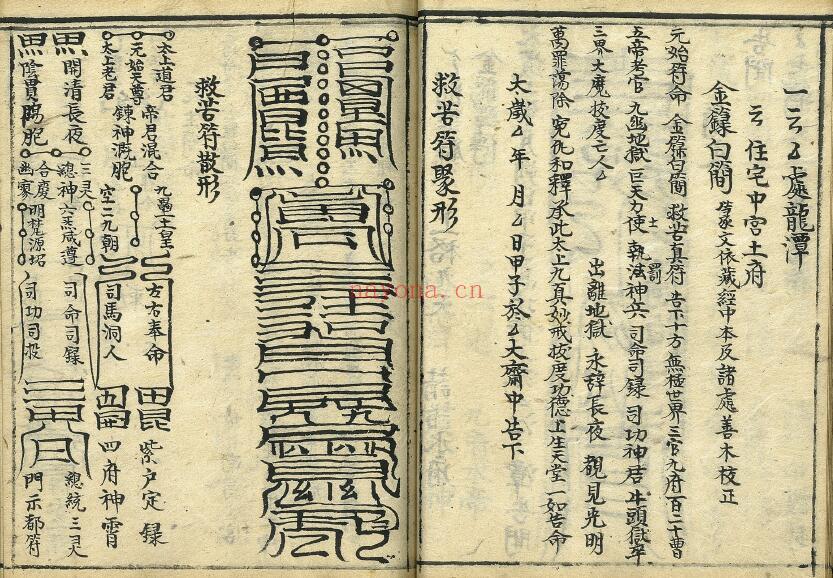 一云厶處龍潭
云住宅中宮土府
金籙白簡
文依藏經中本及諸處善本校正
元始符命 金籙白簡 救苦真符 告下十方 無極世界 三官九府 百二十曹
五帝考官 九幽地獄 巨天力士使 執罰神兵 司命司錄 司功神君 牛頭獄卒
三界大魔 拔度亡人厶 出離地獄 永辞長夜 覩見光明
萬罪蕩除 寃仇和釋 承此太上九真妙戒 拔度功德 上生天堂 一如告命
太歲厶年 月厶日甲子於厶大齋中告下
救苦符聚形
救苦符散形
太上道君
元始天尊
太上老君
帝君混合
鍊神溉胞
九氣土皇
空二九朝
方右奉命
司馬洞人
紫户定錄
四府神霄
開清長夜
陰貫胞
三炁
總神六炁咸遵
合慶
明梵源
幽寥
司命司錄
司功司投
總統三炁
門示都符
nayona.cn